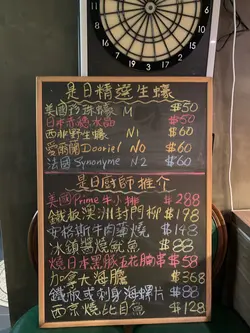 是日精選生蠔
美國珍珠蠔 M $50
日本赤穗水晶 $50
西非野生蠔 N1 $60
愛爾蘭Dooriel N0 $60
法國 Synonyme N2 $60
是日廚師推介
美國Prime牛小排 $288
鐵板澳洲封門柳 $198
安格斯牛肉薯燒 $148
冰鎮醬燒魷魚 $88
燒日本黑豚五花腩串 $58
加拿大海膽 $368
鐵板或刺身海螺片 $88
西京燒比目魚 $128